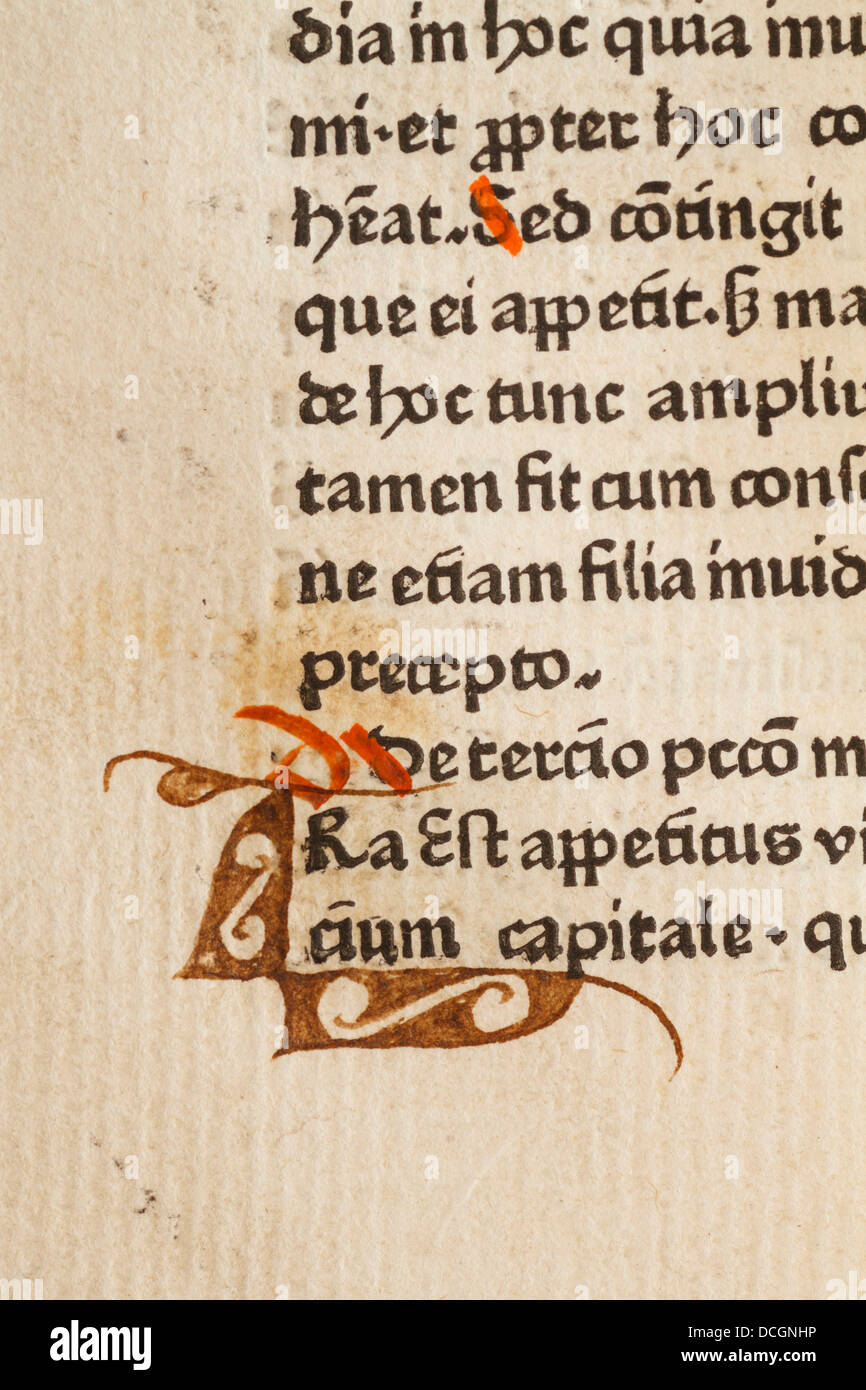 dia in hoc quia inu
mi·et ꝓpter hoc co
hēat. Sed cōtingit
que ei appetit. sꝫ ma
de hoc tunc ampliu
tamen fit cum conſe
ne etiam filia inuid
precepto.
De tercio pccō m
IRa Eſt appetitus vi
cium capitale · qu
alamy
Image ID: DCGNHP
www.alamy.com